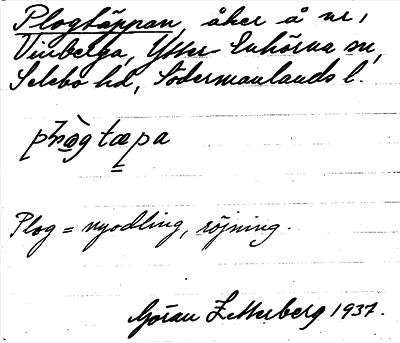 Plogtäppan, åker å nr 1
Vinberga, Ytter Enhörna sn,
Selebo hd, Södermanlands l.
Plog = nyodling, röjning.
Göran Zetterberg 1937.